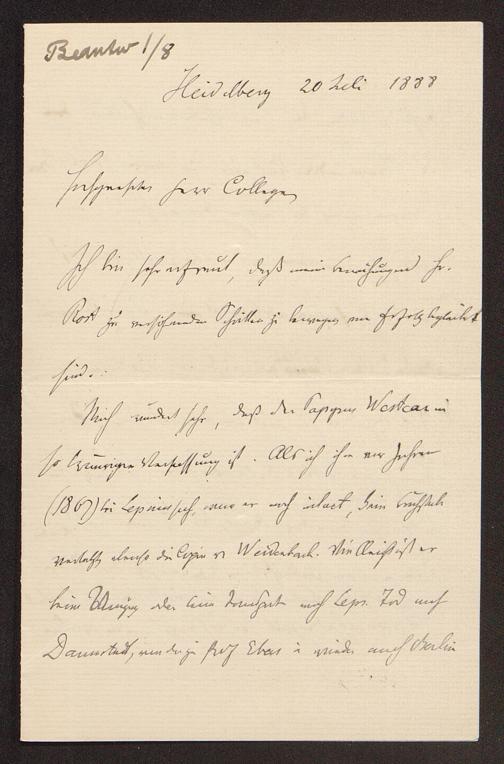 Beantw 1/8
Heidelberg 20 Juli 1888
Hochgeehrter Herr College
Ich bin sehr erfreut, daß meine Bemühungen Hr.
Rost zu versöhnenden Schritten zu bewegen von Erfolg begleitet
sind.
Mich wundert sehr, daß der Papyrus Westcar in
so traurigen Verfassung ist. Als ich ihn vor Jahren
(1869) bei Lepsius sah, war er noch intact, kein
ebenso die Copie v. Weidenbach. Vielleicht ist er
beim Umzug oder beim Transport nach Leps. Tod nach
Darmstadt, von da zu Prof Ebers u wieder nach Berlin